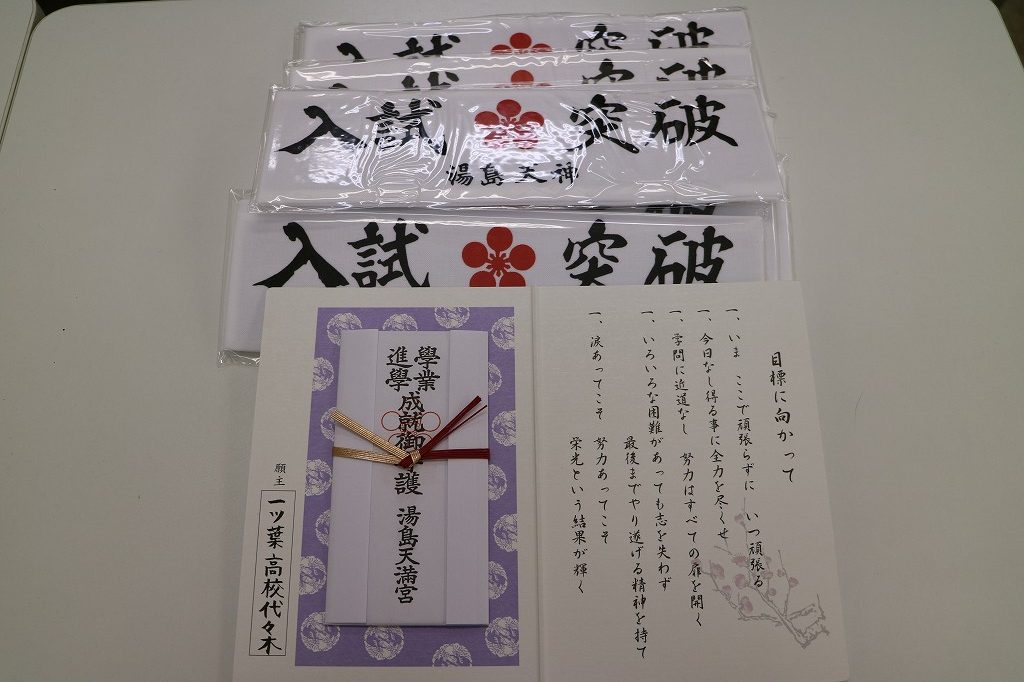 入試 突破
入試 突破
入試 突破
湯島天神
入試 突破
目標に向かって
一、いま ここで頑張らずに いつ頑張る
一、今日なし得る事に全力を尽くせ
一、学問に近道なし 努力はすべての扉を開く
一、いろいろな困難があっても志を失わず
最後までやり遂げる精神を持て
一、涙あってこそ 努力あってこそ
栄光という結果が輝く
學業
進學
成就御守護
湯島天満宮
願主
一ツ葉高校代々木